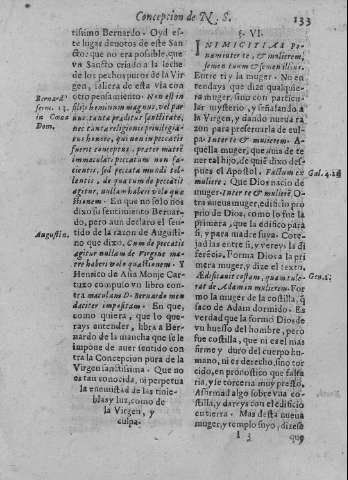 Concepcion de N. S.
133
tissimo Bernardo. Oyd es-
te lugar deuotos de este San
cto: que no era posible que
vn Sancto criado a la leche
de los pechos puros de la Vir
gen, saliera de esta vida con
otro pensamiento. Non est in
filijs hominum magnus, vel par
uus tanta præditus sanctitate,
nec tanta religionis priuilegiatus
honore, qui non in peccato
fuerit conceptus, præter matrē
immaculati peccatum non fa-
cientis, sed peccata mundi tol-
lentis, de qua cum de peccatis
agitur, nullam haberi volo quæ
stionem. En que no solo nos
dixo su sentimiento Bernar-
do, pero aun declaro el sen-
tido de la razon de Augusti-
no que dixo, Cum de peccatis
agitur nullam de Virgine ma-
re haberi volo quæstionem. Y
Henrico de Asia Monje Car-
tuxo compuso vn libro con-
tra maculam D. Bernardo men
daciter impositam. En que,
como quiera, que lo que-
rays entender, libra a Ber-
nardo de la mancha que se le
impone de auer sentido con
tra la Concepcion pura de la
Virgen sanctissima. Que no
es tan conocida, ni perpetua
la enemistad de las tinie-
blas y luz, como de
la Virgen, y
culpa.
Bernard°
serm. 13.
in Cœna
Dom.
Augustin.
§. VI.
INIMICITIAS Po-
nam inter te, & mulierem,
semen tuum & semen illius.
Entre ti y la muger. No en-
tendays que dize qualquie-
ra muger, sino con particu-
lar mysterio, y señalando a
la Virgen, y dando nueua ra
zon para preseruarla de cul-
pa. Inter te & mulierem. A-
quella muger, que auia de te
ner tal hijo, de quiē dixo des-
pues el Apostol. Factum ex
muliere. Que Dios nacio de
muger. Inter te & mulierē. O-
tra nueua muger, edificio pro
prio de Dios, como lo fue la
primera, que la edificò para
si, y para madre suya. Cote-
jad las entre si, y vereys la di
ferēcia. Forma Dios a la pri
mera muger, y dize el texto.
Ædificauit costam, quam tule-
rat de Adam in mulierem. For
mo la muger de la costilla, q̄
saco de Adam dormido. Es
verdad que la formò Dios de
vn huesso del hombre, pero
fue costilla, que ni es el mas
firme y duro del cuerpo hu-
mano, ni es derecho, sino tor
cido, en pronostico que falsa
ria, y se torceria muy presto.
Assirmad algo sobre vna co-
stilla, y dareys con el edificio
en tierra. Mas desta nueua
muger, y templo suyo, dizese
Gal. 4.
Gen. 2.
I 3
que